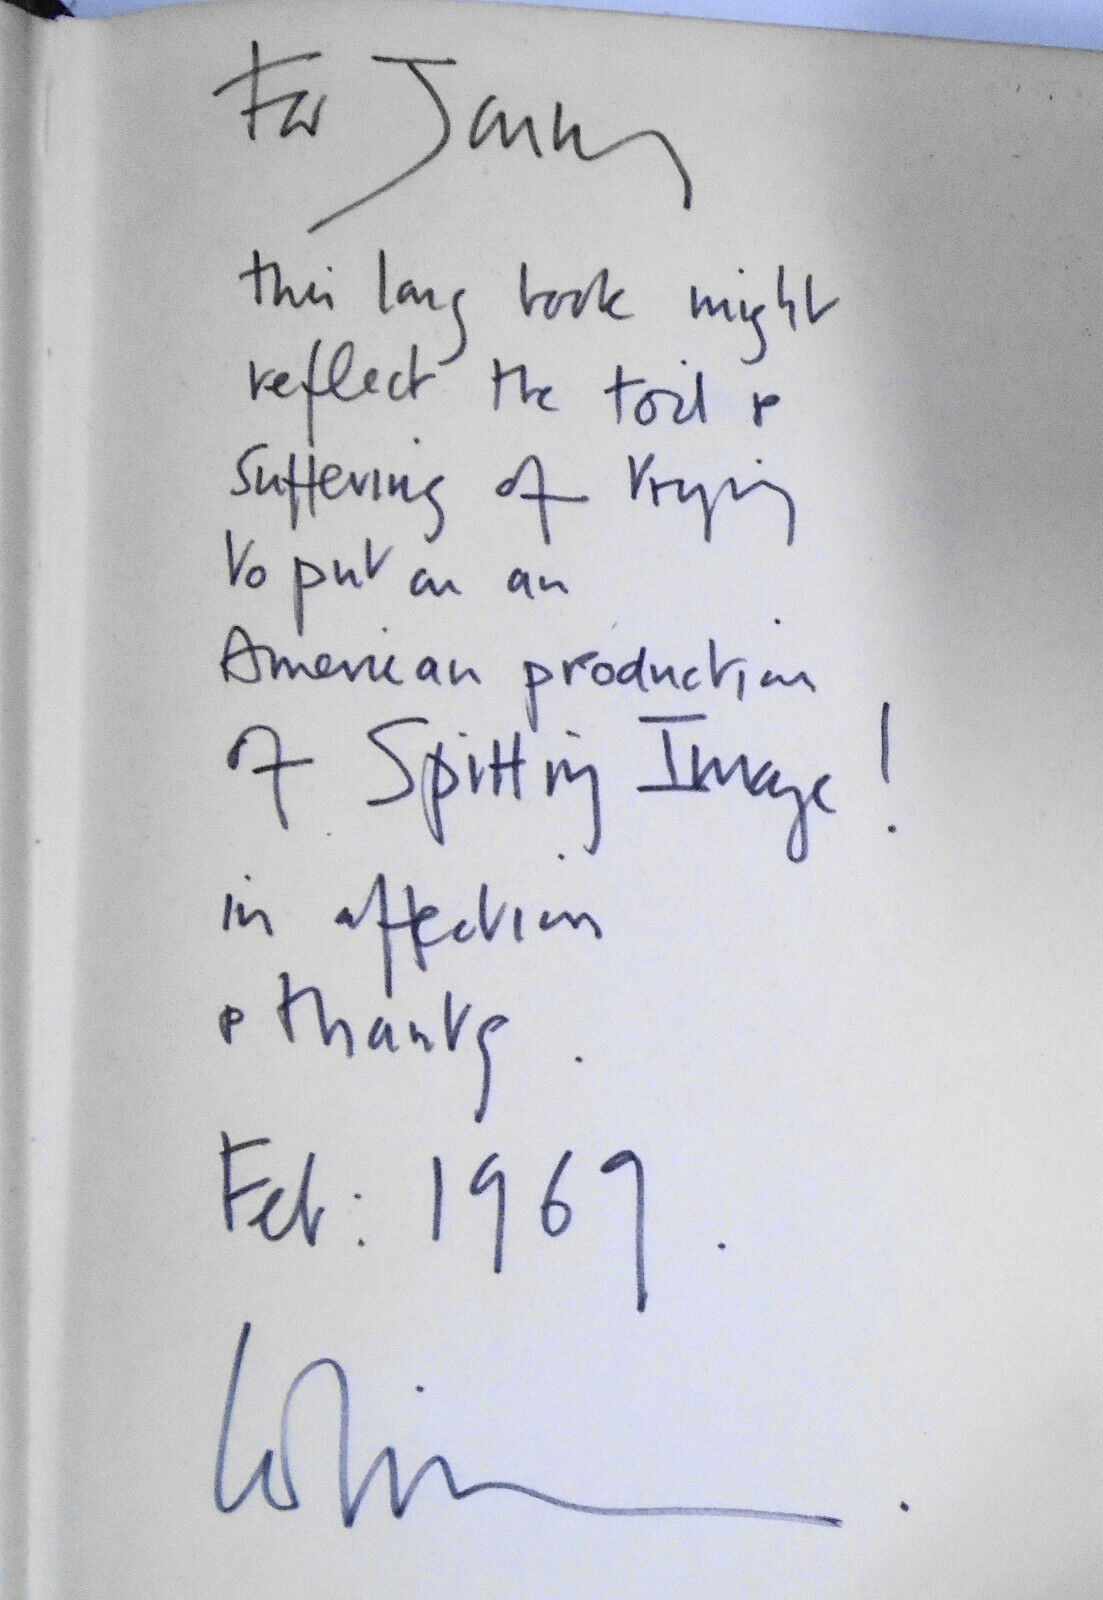 For
this long book might
reflect the toil &
Suffering of trying
to put on an
American production
of Spitting Image!
in affection
& thanks.
Feb: 1969.
Colin.